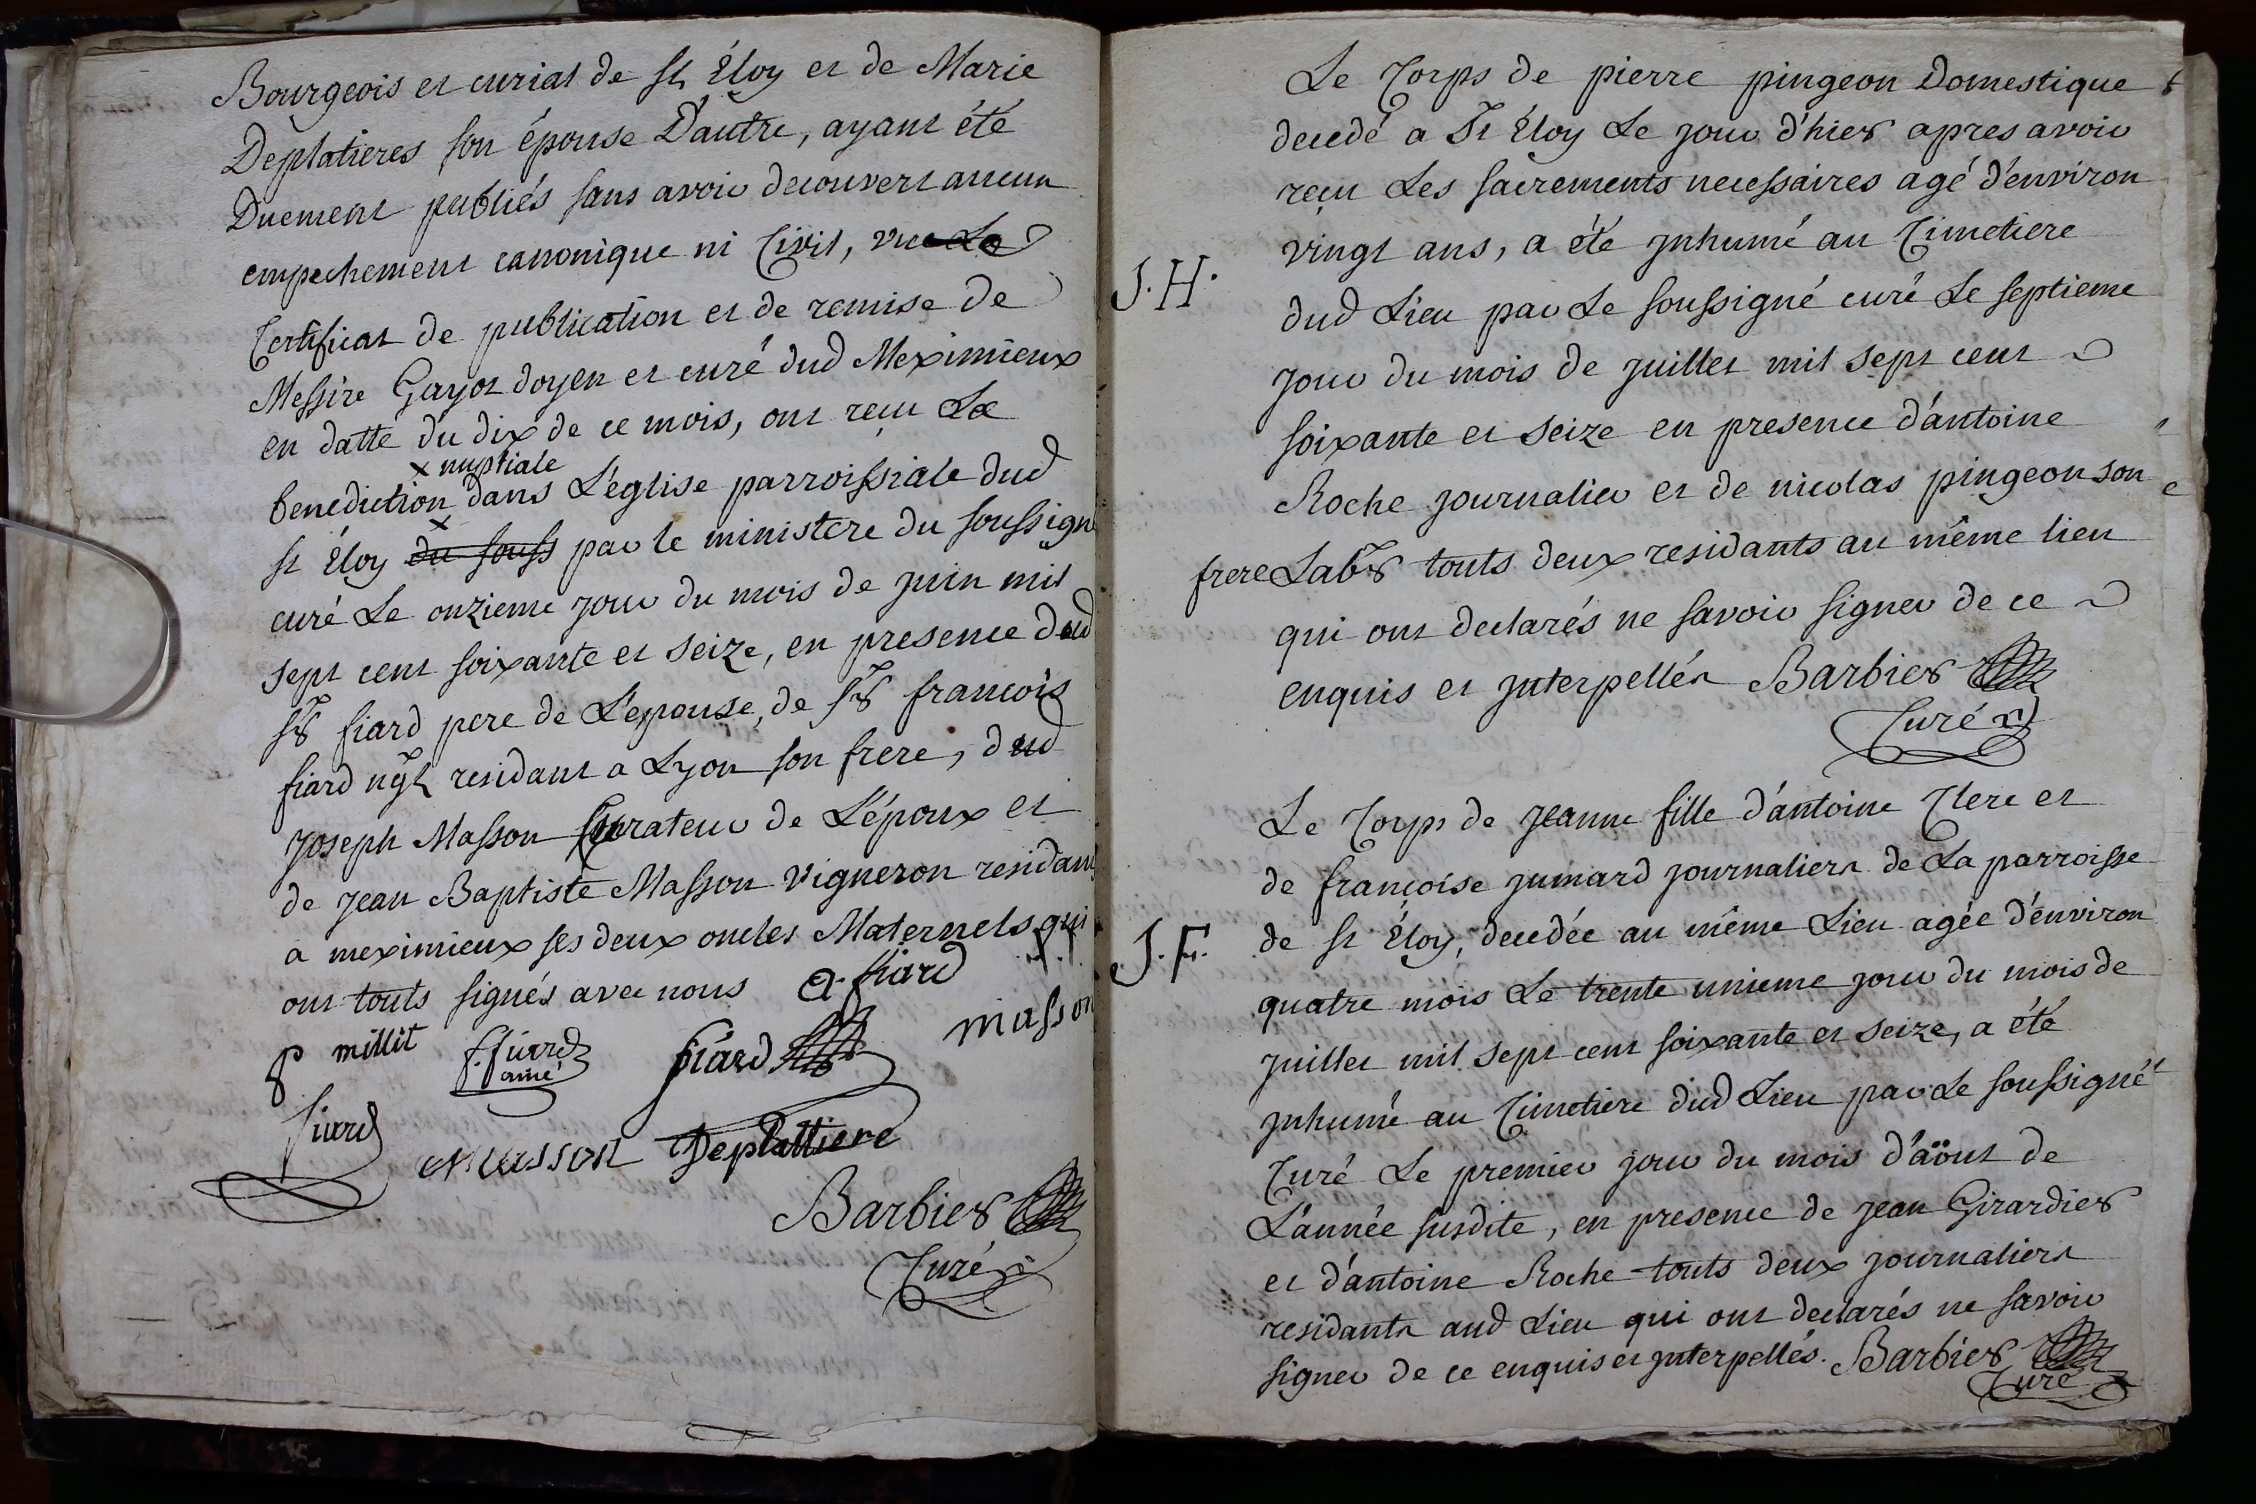 Bourgeois et curial de st Éloy et de Marie
Deplatieres son épouse D'autre, ayant été
Duement publiés sans avoir decouvert aucun
empechement canonique ni Civil, vu Le
Certificat de publication et de remise de
Messire Gayot doyen et curé dud Meximieux
en datte du dix de ce mois, ont reçu La
x nuptiale
benediction dans L'église parroissiale dud
st Éloy du souss par le ministere du soussigné
curé Le onzieme jour du mois de juin mil
sept cent soixante et seize, en presence dud
sr fiard pere de L'epouse, de sr francois
fiard ngt residant a Lyon son frere, dud
joseph Masson Curateur de L'époux et
de jean Baptiste Masson vigneron residant
a meximieux ses deux oncles Maternels qui
ont touts signés avec nous a. fiard
p millit f. fiard fiard masson
ainé
fiard masson Deplattiere
Barbier
Curé
Le Corps de pierre pingeon Domestique
decedé a St Éloy Le jour d'hier apres avoir
reçu Les sacrements necessaires agé d'environ
vingt ans, a été jnhumé au Cimetiere
J.H.
dud Lieu par Le soussigné curé Le septieme
jour du mois de juillet mil sept cent
soixante et seize en presence d'antoine
Roche journalier et de nicolas pingeon son
frere Labr touts deux residants au même lieu
qui ont declarés ne savoir signer de ce
enquis et jnterpellés Barbier
Curé
Le Corps de jeanne fille d'antoine Clerc et
de françoise jumard journaliers de La parroisse
J.F.
de st Éloy, decedée au même Lieu agée d'environ
quatre mois Le trente unieme jour du mois de
juillet mil sept cent soixante et seize, a été
jnhumé au Cimetiere dud Lieu par Le soussigné
Curé Le premier jour du mois d'aöut de
L'année susdite, en presence de jean Girardier
et d'antoine Roche touts deux journaliers
residants aud Lieu qui ont declarés ne savoir
signer de ce enquis et jnterpellés. Barbier
Curé